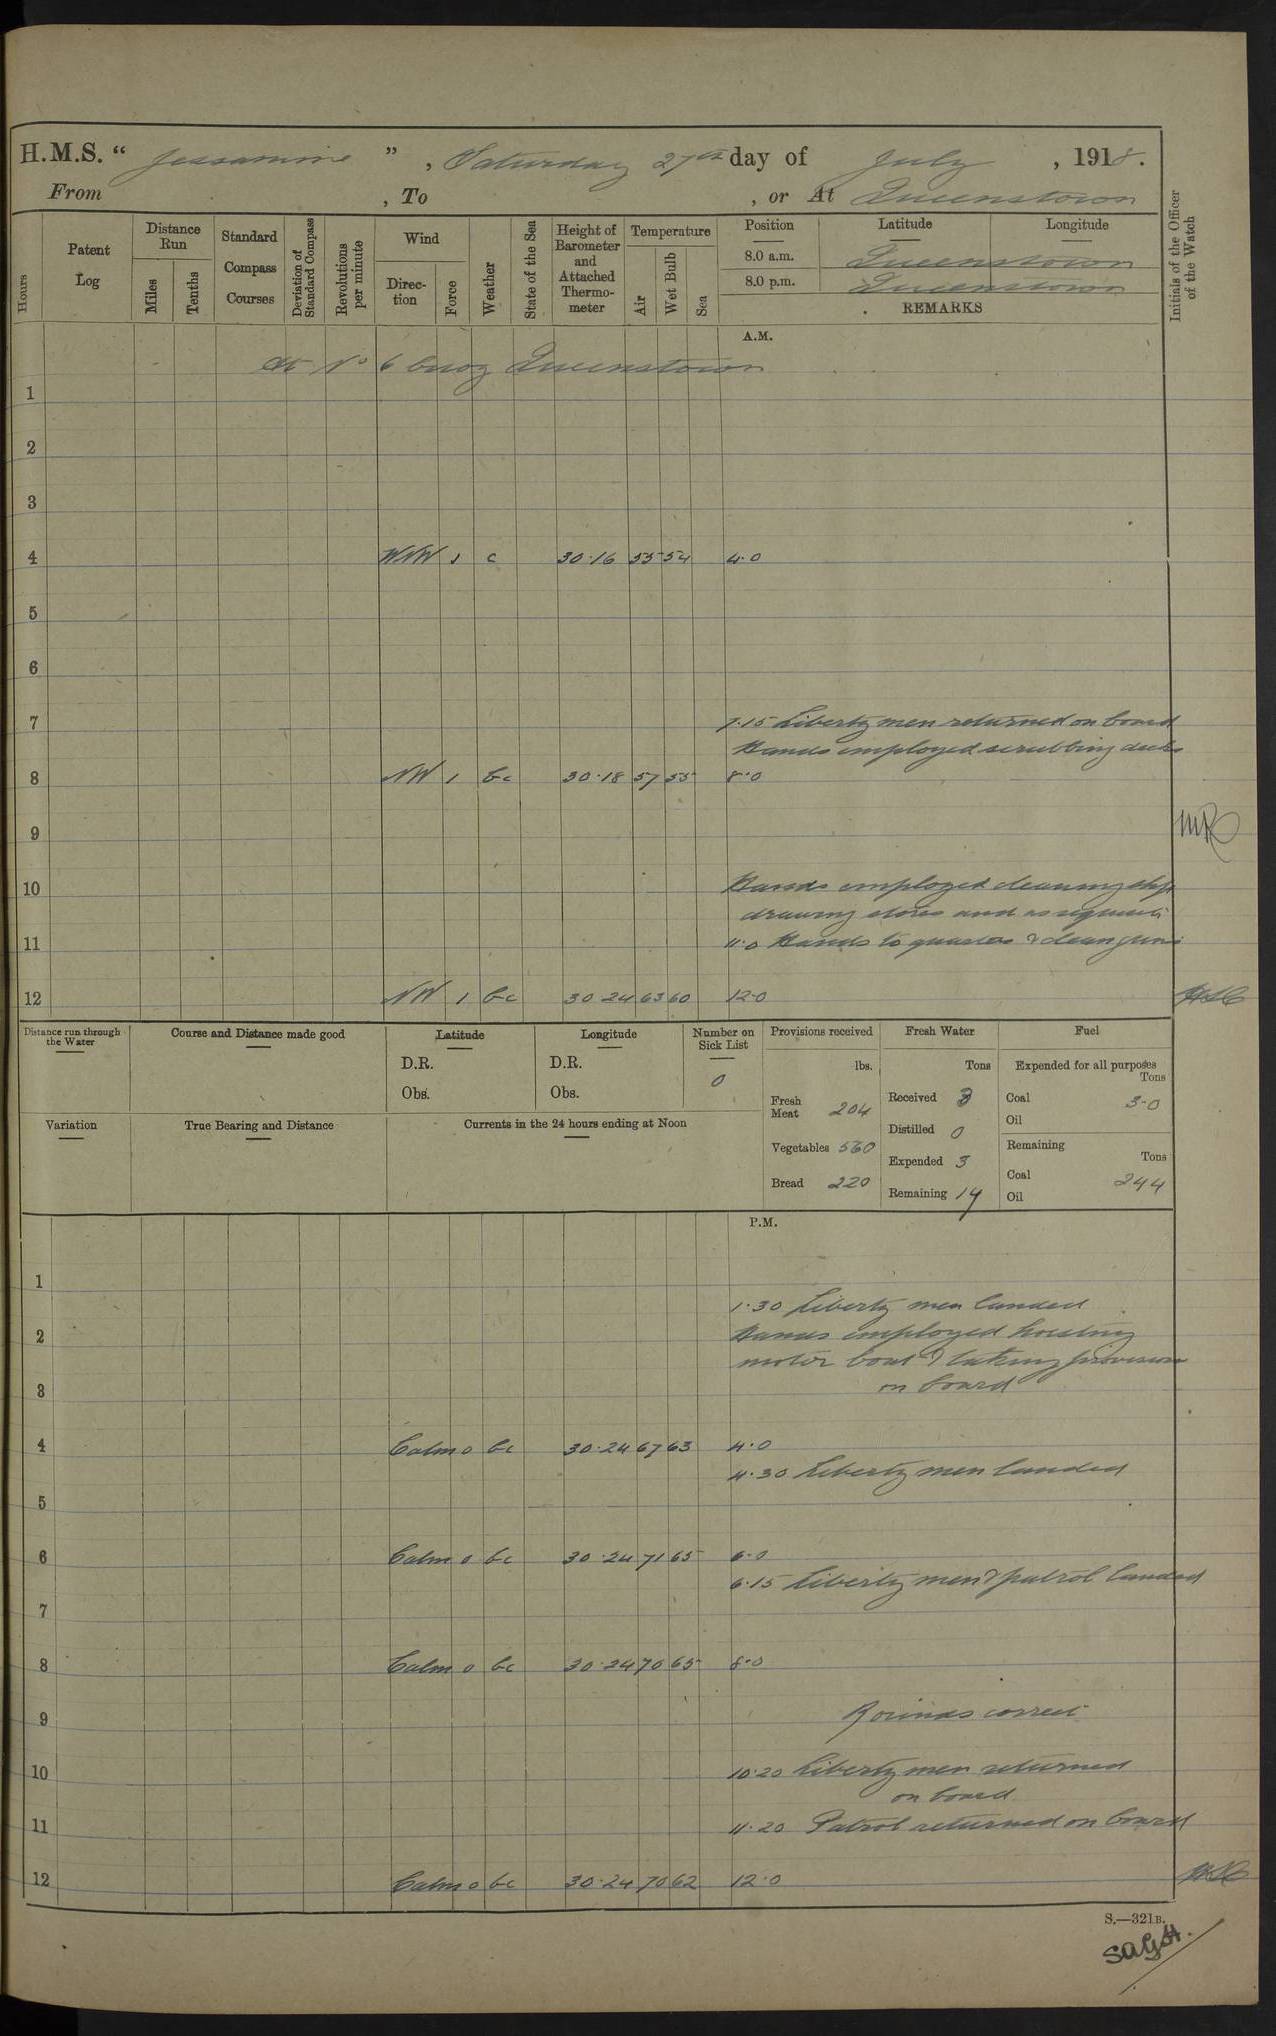 H.M.S. “ Jessamine ” , Saturday 27th day of July , 1918.
From , To , or At Queenstown
Hours
Patent Log
Distance Run
Miles
Tenths
Standard Compass Courses
Deviation of Standard Compass
Revolutions per minute
Wind
Direction
Force
Weather
State of the Sea
Height of Barometer and Attached Thermometer
Temperature
Air
Wet Bulb
Sea
Position Latitude Longitude
8.0 a.m. Queenstown
8.0 p.m. Queenstown
REMARKS
Initials of the Officer of the Watch
A.M.
At No 6 buoy Queenstown
1
2
3
4 WNW 1 c 30.16 55 54 4.0
5
6
7 7.15 Liberty men returned on board
Hands employed scrubbing decks
8 NW 1 bc 30.18 57 55 8.0
9
10 Hands employed cleaning ship
drawing stores and as requisite
11 11.0 Hands to quarters & clean guns
12 NW 1 bc 30 24 63 60 12.0
Distance run through the Water
Course and Distance made good
Latitude
D.R.
Obs.
Longitude
D.R.
Obs.
Number on Sick List
0
Provisions received
lbs.
Fresh Meat 204
Vegetables 560
Bread 220
Fresh Water
Tons
Received 3
Distilled 0
Expended 3
Remaining 14
Fuel
Expended for all purposes
Tons
Coal 3.0
Oil
Remaining
Tons
Coal 244
Oil
Variation
True Bearing and Distance
Currents in the 24 hours ending at Noon
P.M.
1
1.30 Liberty men landed
2 Hands employed hoisting
motor boat & taking provisions
3 on board
4 Calm 0 bc 30.24 67 63 4.0
4.30 Liberty men landed
5
6 Calm 0 bc 30.24 71 65 6.0
6.15 Liberty men & patrol landed
7
8 Calm 0 bc 30.24 70 65 8.0
9 Rounds correct
10 10.20 Liberty men returned
on board
11 11.20 Patrol returned on board
12 Calm 0 bc 30.24 70 62 12.0
S.—321B.